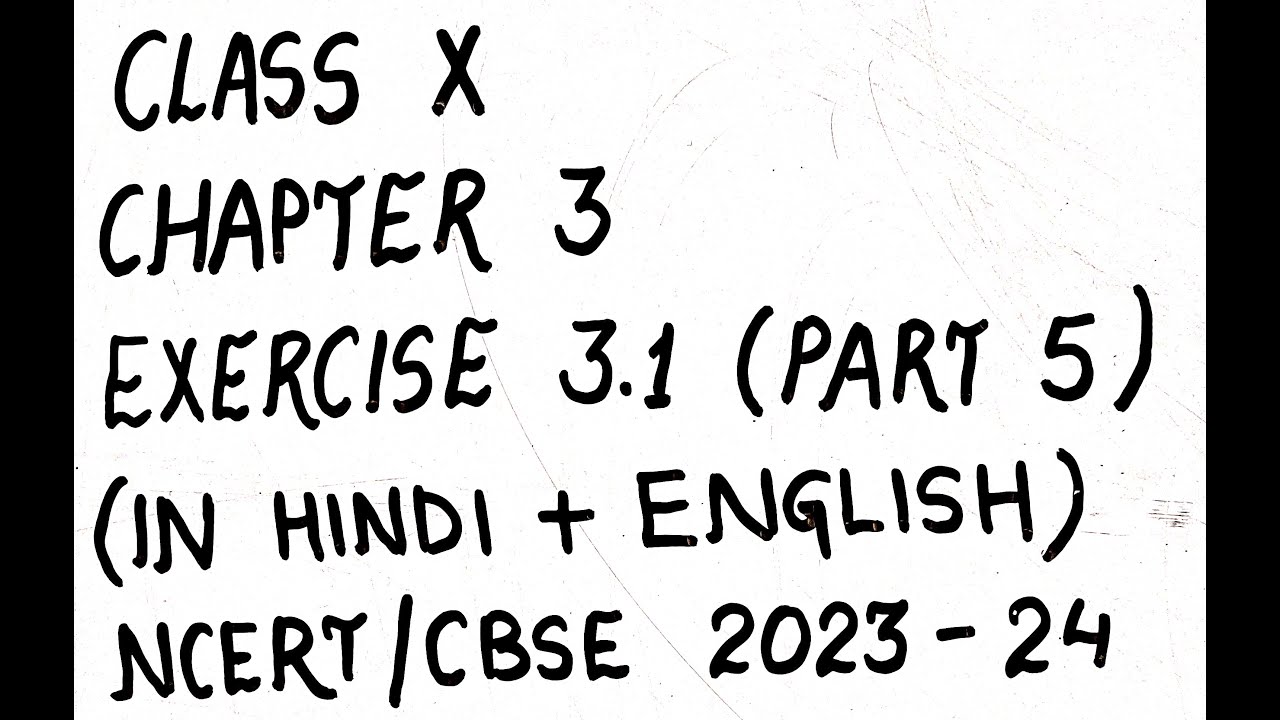 CLASS X
CHAPTER 3
EXERCISE 3.1 (PART 5)
(IN HINDI + ENGLISH)
NCERT/CBSE 2023-24